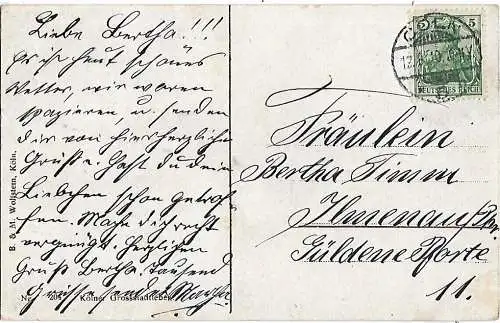 Liebe Bertha!!!
Es ist heut schönes
Wetter, wir waren
spazieren, u. senden
dir von hier herzliche
Grüsse. Hast du dein
Liebchen schon getrof-
fen. Mach dich recht
vergnügt. Herzlichen
Gruß Bertha. Tausend
Grüsse sendet Martha
B. & M. Wolfstein, Köln.
No. 205 Kölner Grossstadtleben
CÖLN
5 5
DEUTSCHES REICH
Fräulein
Bertha Timm
Ilmenau
Güldene Pforte
11.